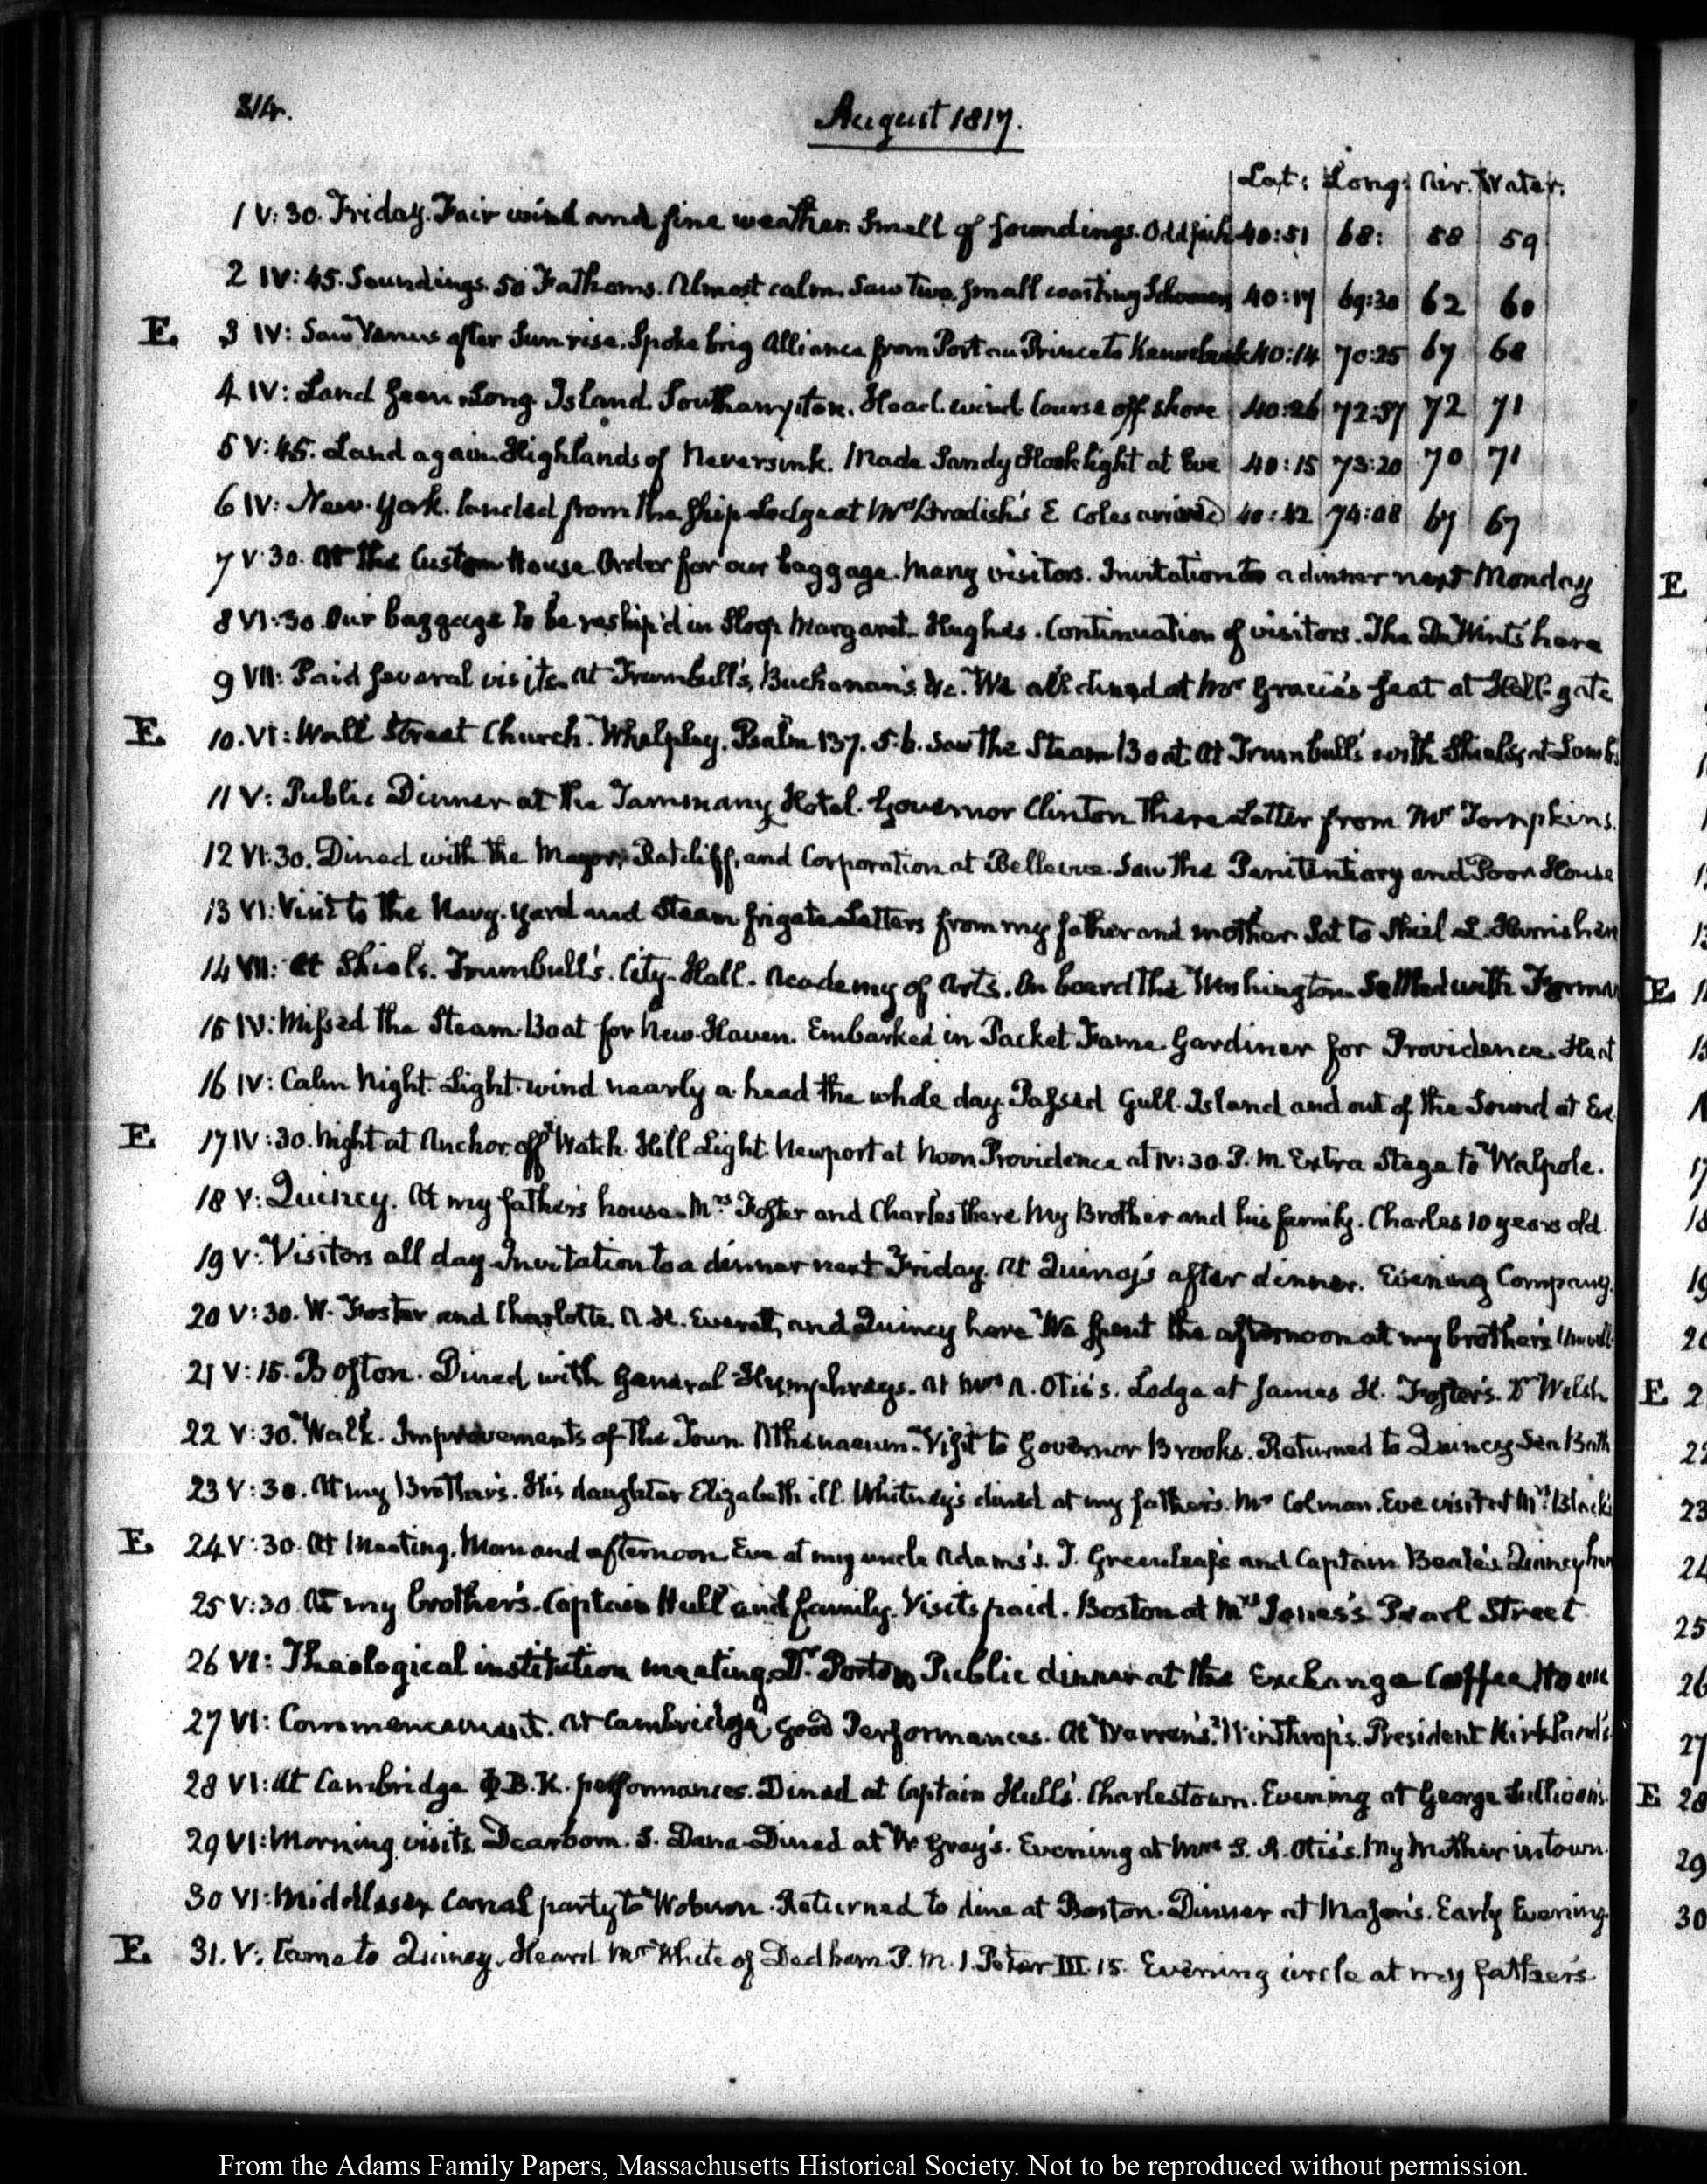 314.
August 1817.
Lat: Long: Air. Water.
1 V:30. Friday. Fair wind and fine weather. Smell of soundings. Odd fish 40:51 68: 58 59
2 IV:45. Soundings. 50 Fathoms. Almost calm. Saw two small coasting Schooners 40:17 69:30 62 60
E. 3 IV: Saw Venus after Sunrise. Spoke brig Alliance from Port au Prince to Kennebunk 40:14 70:25 67 68
4 IV: Land seen. Long Island. Southampton. Head wind. Course off shore 40:26 72:57 72 71
5 V:45. Land again. Highlands of Neversink. Made Sandy Hook light at Eve 40:15 73:20 70 71
6 IV: New-York. landed from the ship. Lodge at Mrs Bradish's E Coles arrived 40:42 74:08 67 67
7 V:30. At the Custom House. Order for our baggage. Many visitors. Invitation to a dinner next Monday
8 VI:30. Our baggage to be reship'd in Sloop Margaret. Hughes. Continuation of visitors. The De Wints here
9 VII: Paid several visits. At Trumbull's, Buchanan's &c. We all dined at Mr Gracie's seat at Hell-gate
E. 10. VI: Wall Street Church. Whelpley. Psalm 137. 5.6. Saw the Steam Boat. At Trumbull's with Shiels, at Lomb's
11 V: Public Dinner at the Tammany Hotel. Governor Clinton there. Letter from Mr Tompkins.
12 VI:30. Dined with the Mayor, Ratcliff, and Corporation at Bellevue. Saw the Penitentiary and Poor House
13 VI: Visit to the Navy-yard and Steam frigate. Letters from my father and mother. Sat to Shiel L. Harris here
14 VII: At Shiels. Trumbull's. City-Hall. Academy of Arts. On board the Washington. Settled with Forman
15 IV: Missed the Steam-Boat for New-Haven. Embarked in Packet Fame. Gardiner for Providence. Heat
16 IV: Calm Night. Light wind nearly a-head the whole day. Passed Gull-Island and out of the Sound at Eve
E. 17 IV:30. Night at Anchor, off Watch-Hill Light. Newport at Noon Providence at IV:30. P.M. Extra Stage to Walpole.
18 V: Quincy. At my father's house. Mrs Foster and Charles there My Brother and his family. Charles 10 years old.
19 V: Visitors all day. Invitation to a dinner next Friday. At Quincy's after dinner. Evening Company.
20 V:30. W. Foster and Charlotte. A. H. Everett, and Quincy here. We spent the afternoon at my brother's Unwell
21 V:15. Boston. Dined with General Humphreys. At Mrs A. Otis's. Lodge at James H. Foster's. Dr Welsh
22 V:30. Walk. Improvements of the Town. Athenaeum. Visit to Governor Brooks. Returned to Quincy Sea Bath
23 V:30. At my Brother's. His daughter Elizabeth ill. Whitney's dined at my father's. Mr Colman. Eve visited Mrs Black's
E. 24 V:30. At Meeting. Morn and afternoon. Eve at my uncle Adams's. J. Greenleaf's and Captain Beale's. Quincy here
25 V:30. At my brother's. Captain Hull and family. Visits paid. Boston at Mrs Jones's Pearl Street
26 VI: Theological institution meeting. Dr Porter. Public dinner at the Exchange Coffee House
27 VI: Commencement. At Cambridge, Good Performances. At Warren's. Winthrop's. President Kirkland's
28 VI: At Cambridge Φ.B.K. performances. Dined at Captain Hull's. Charlestown. Evening at George Sullivan's.
29 VI: Morning visits. Dearborn. S. Dana. Dined at W. Gray's. Evening at Mrs S. A. Otis's. My Mother in town.
30 VI: Middlesex Canal party to Woburn. Returned to dine at Boston. Dinner at Mason's. Early Evening.
E. 31. V: Came to Quincy. Heard Mr White of Dedham P.M. 1. Peter III. 15. Evening circle at my father's
From the Adams Family Papers, Massachusetts Historical Society. Not to be reproduced without permission.